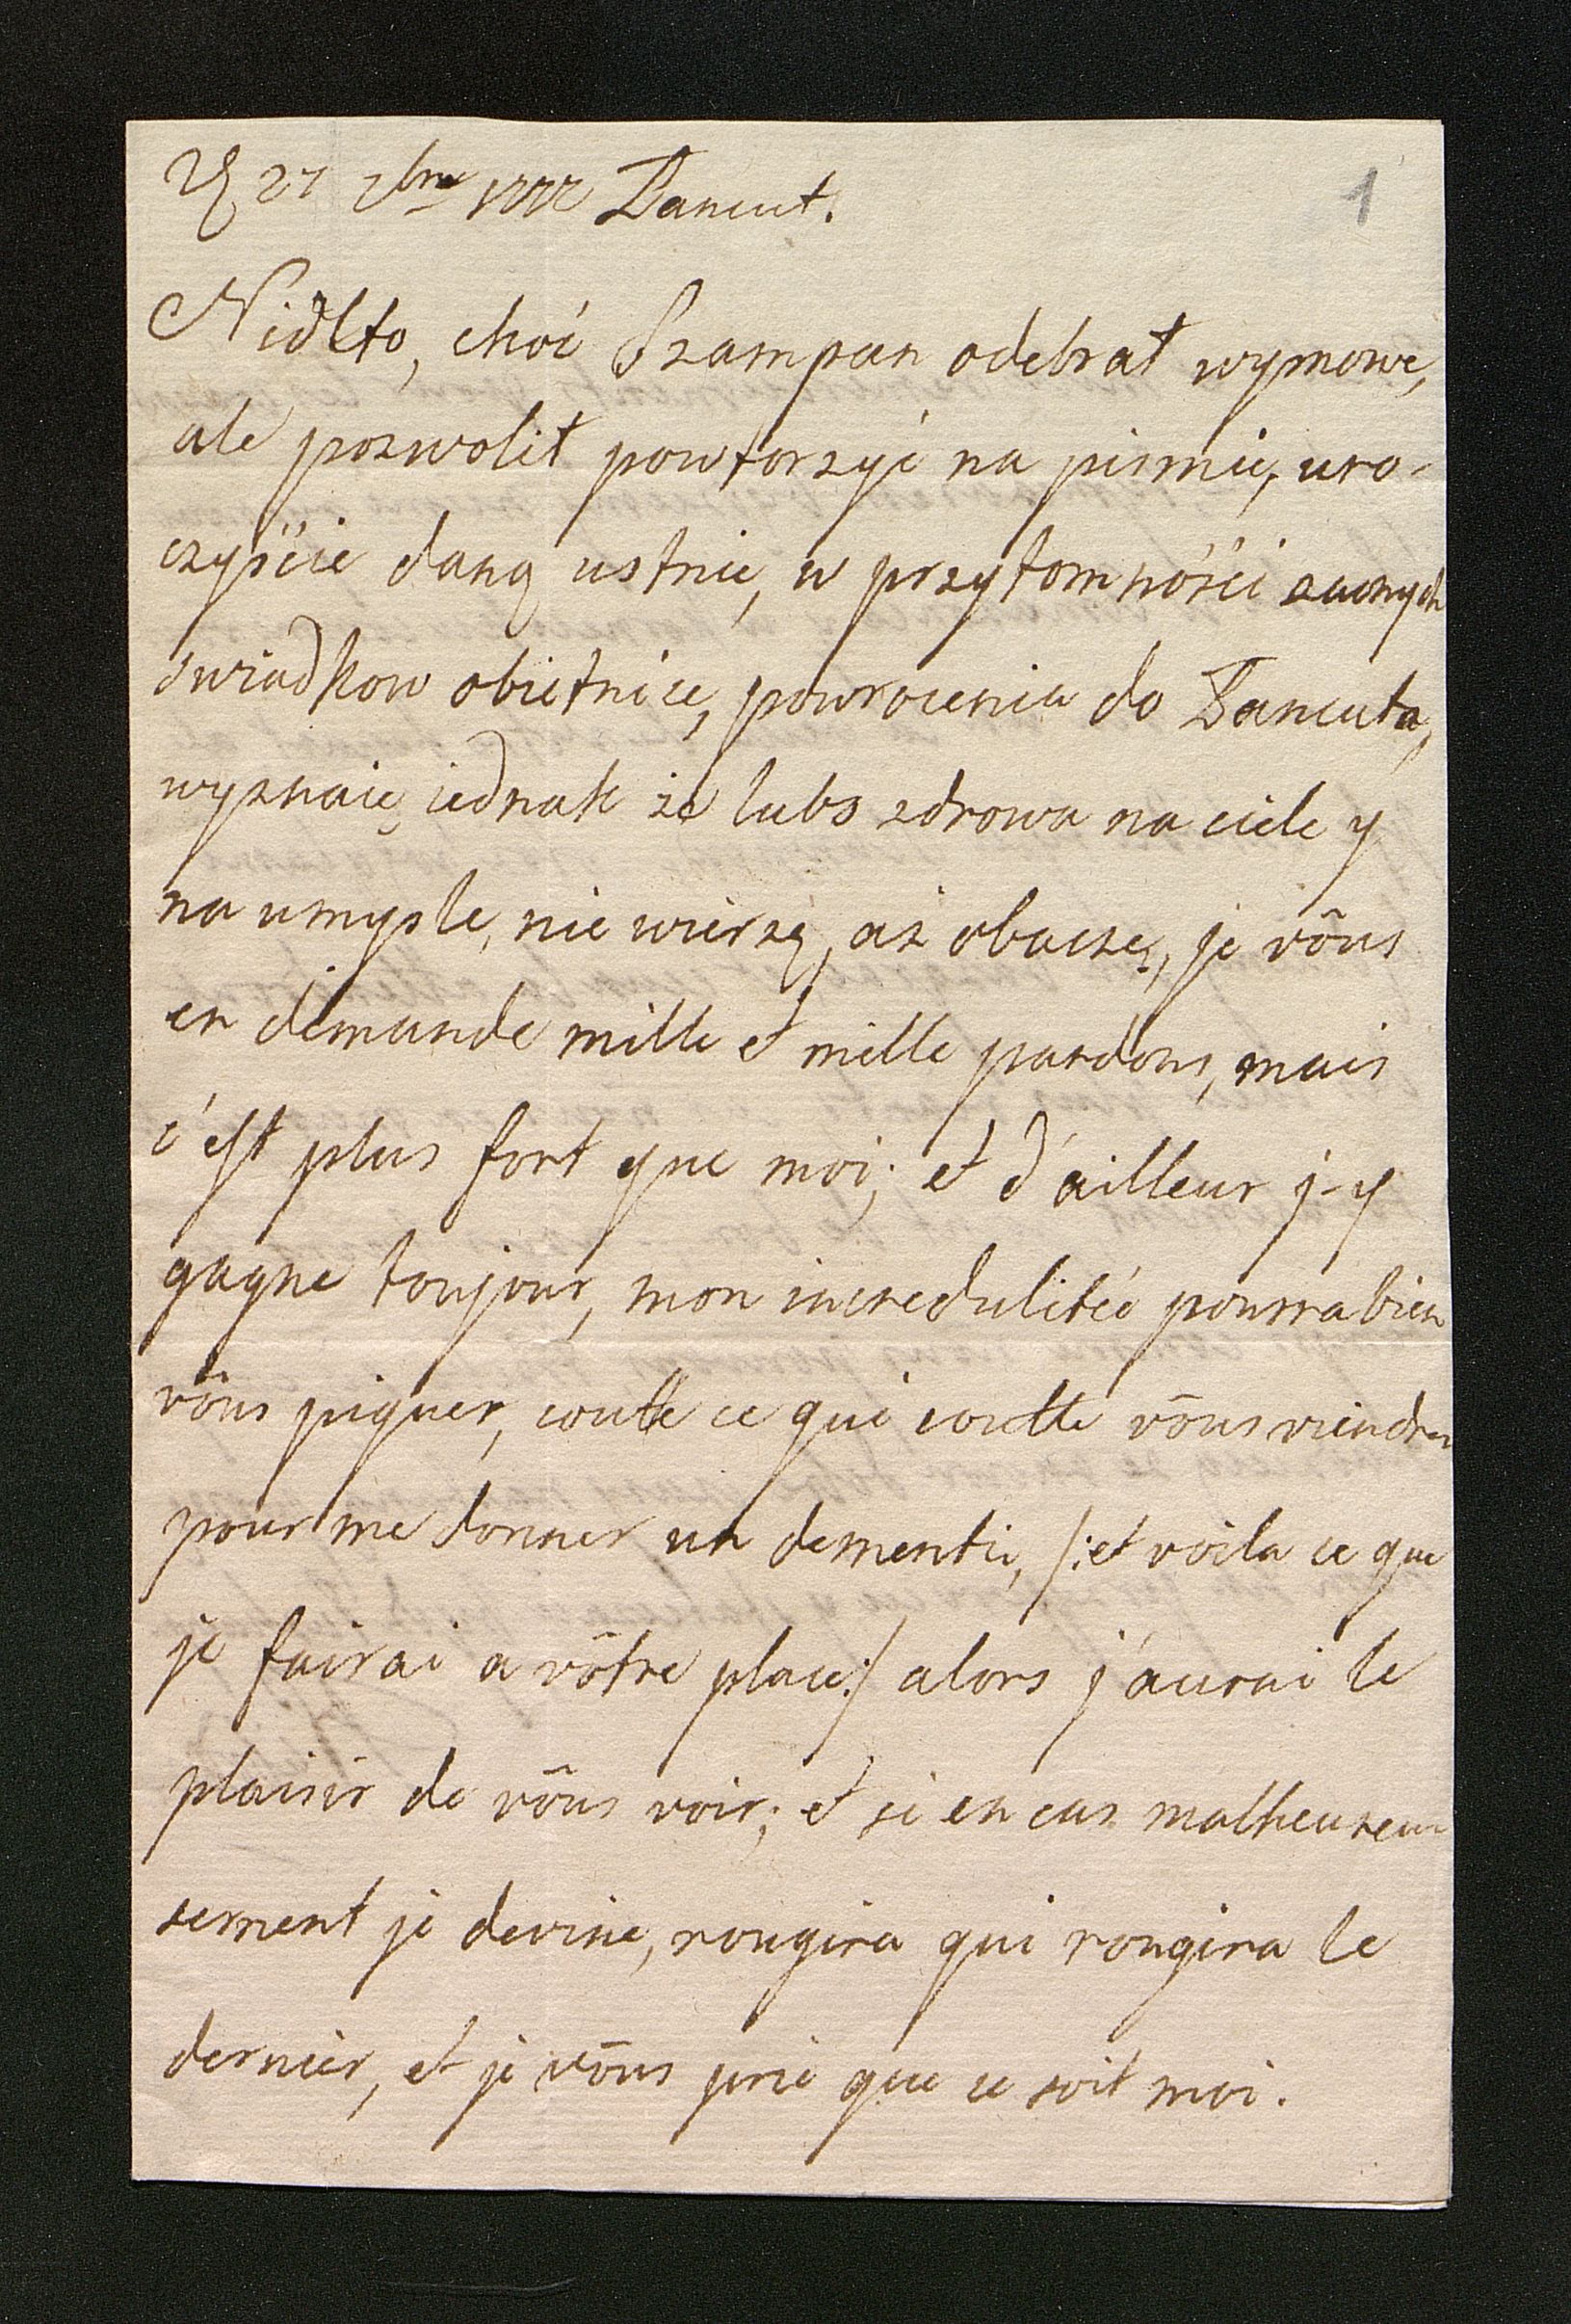 27 7bre Łancut.
1
choć Szampan odebrał wymowę,
ale pozwolił powtorzyć na pismie, uro-
czyście daną ustnie, w przytomności zacnych
swiadkow obietnice, powrocenia do Łancuta,
wyznaię iednak że lubo zdrowa na ciele y
na umysle, nie wierzę, aż obaczę, je võus
en demande mille et mille pardons, mais
c'est plus fort que moi; et d'ailleur j-y
gagne toujour, mon incredulitée pourra bien
võus piquer, coutte ce qui coutte võus viendrez
pour me donner un dementie, /: et voila ce que
je fairai a võtre place :/ alors j'aurai le
plaisir de võus voir; et si en cas malheureu-
sement je devine, rougira qui rougira le
dernier, et je võus prie que ce soit moi.